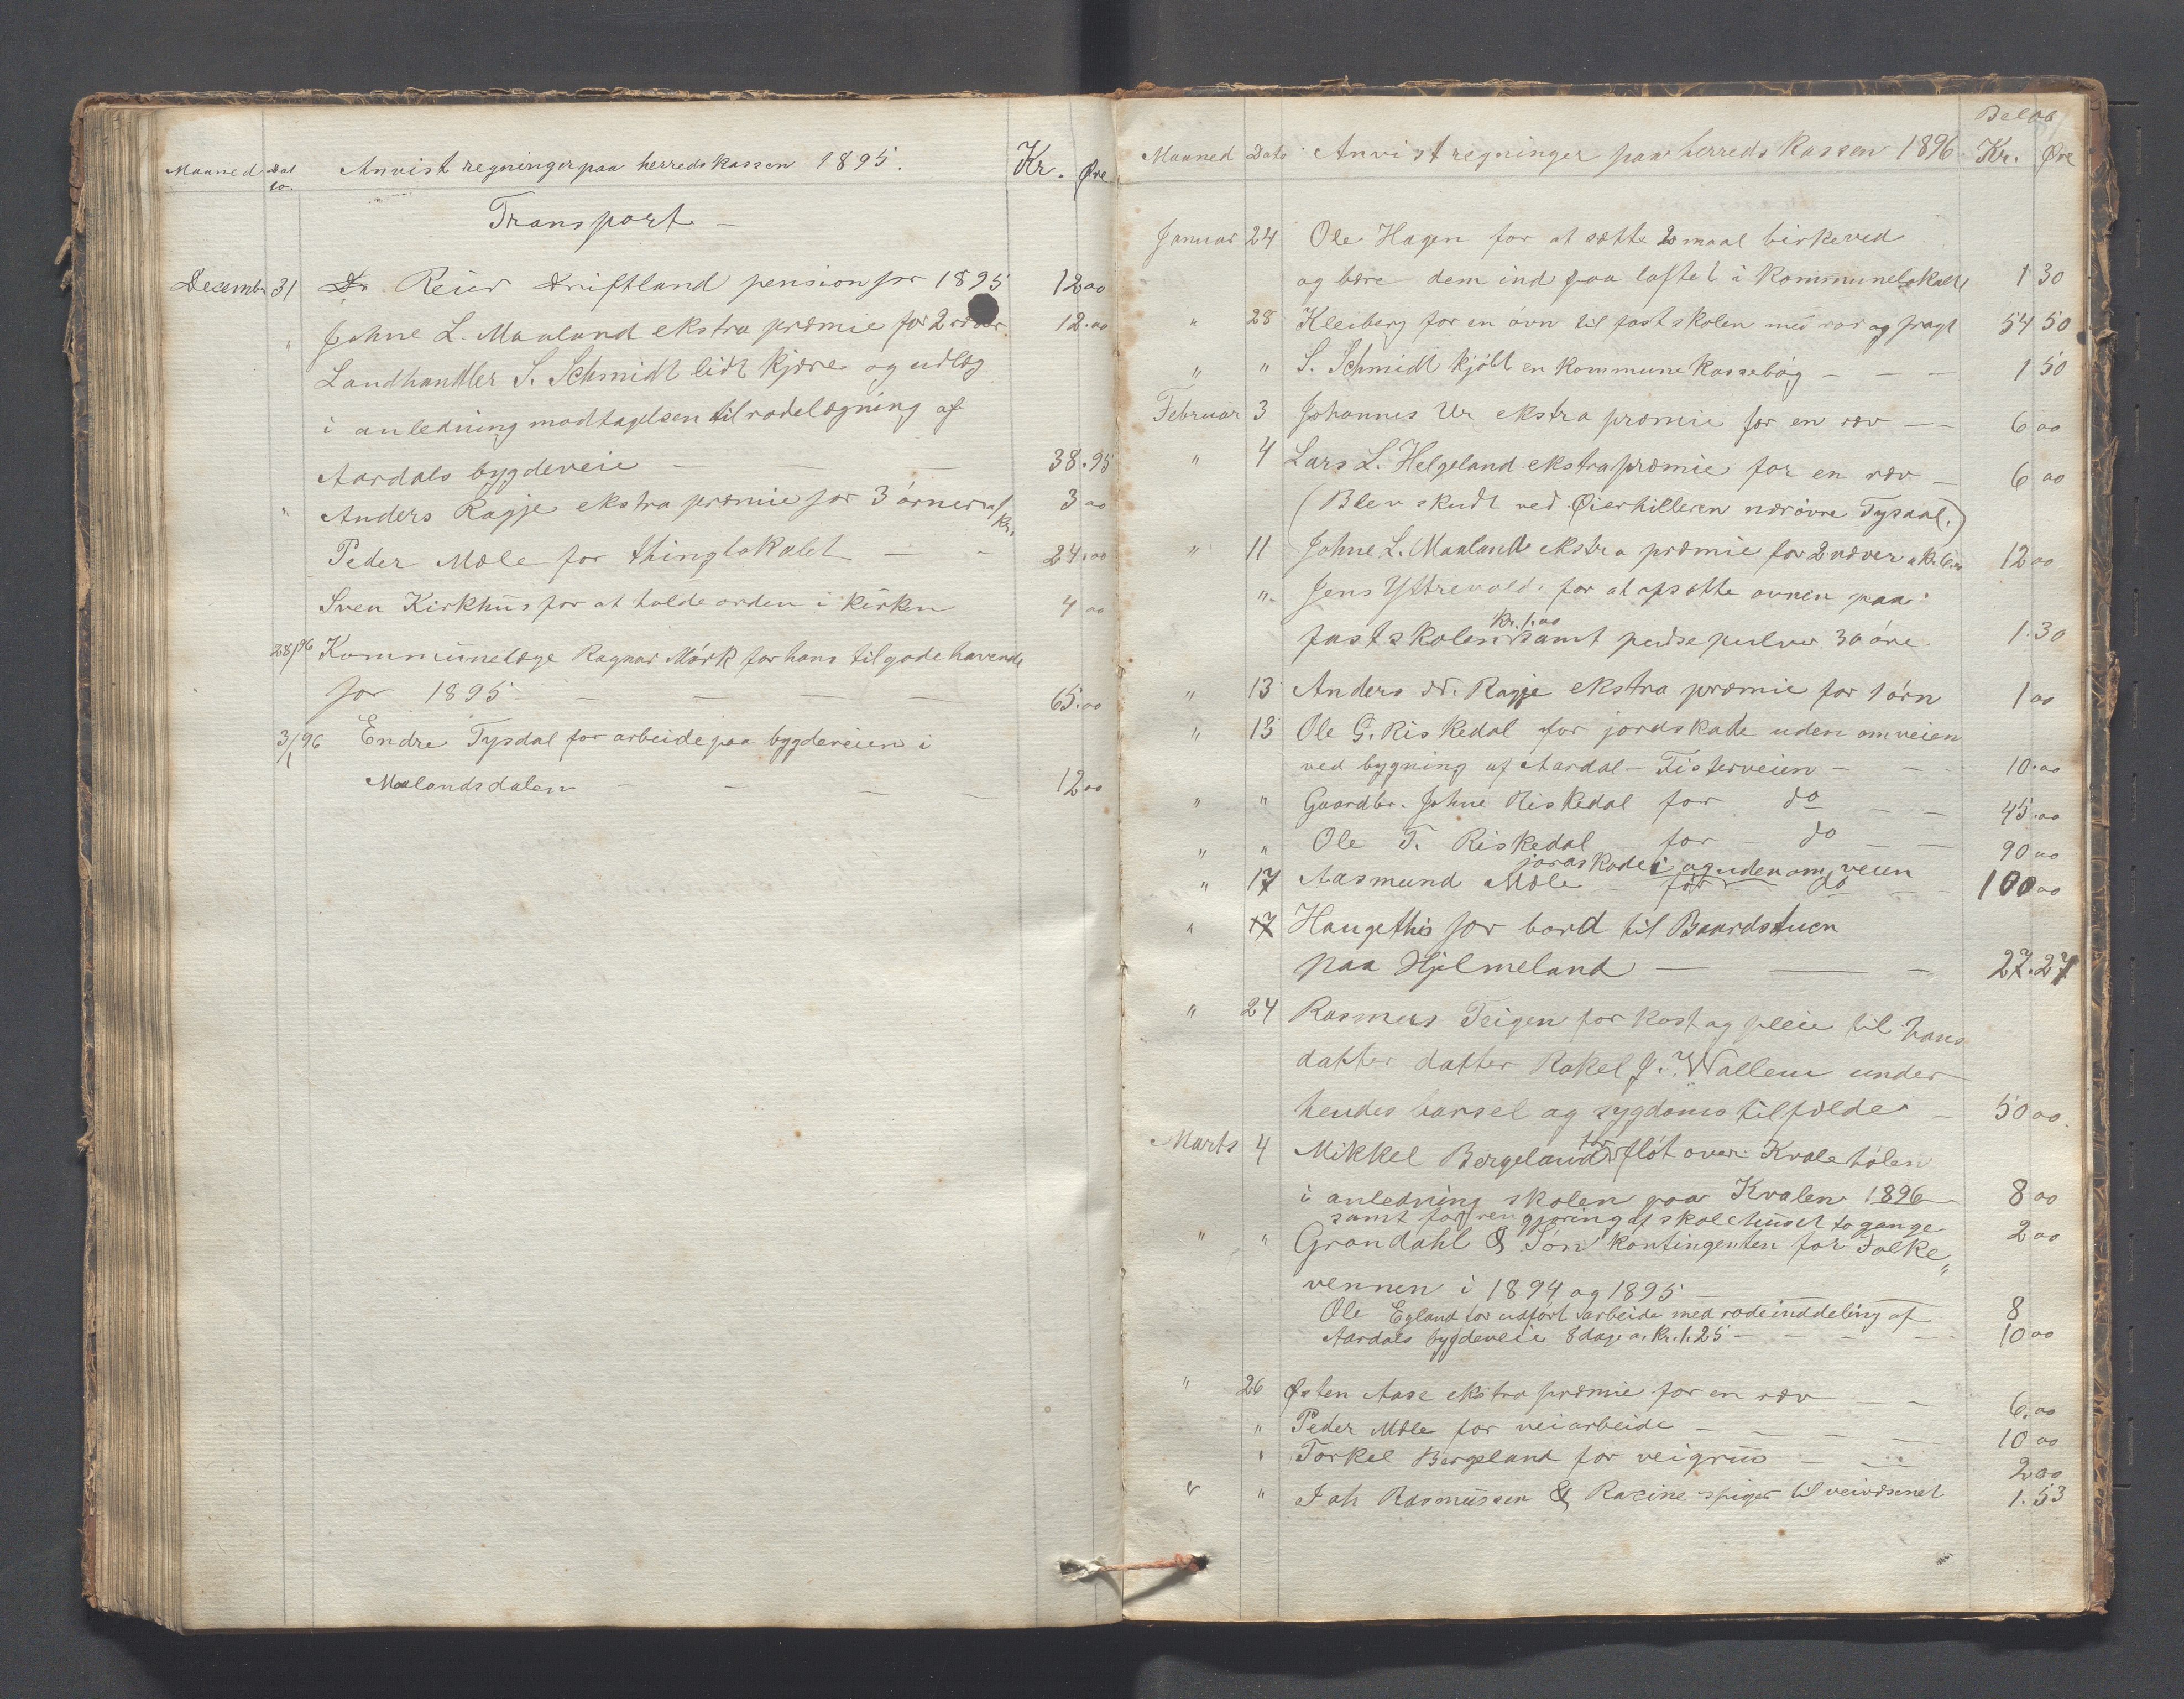 Maaned Dato. Anvist regninger paa herredskassen 1895. Kr. Øre
Transport —
Decembr 31 Dr Reier Driftland pension for 1895 12 00
" Johne L. Maaland ekstra præmie for 2 ræver 12.00
Landhandler S. Schmidt lidt kjøre og udlæg
i anledning modtagelsen til rodelægning af
Aardals bygdeveie — — — 38.95
" Anders Ragje ekstra præmie for 3 ørner a/ Kr. 3 00
Peder Mæle for thinglokalet — - 24.00
Sven Kirkhus for at holde orden i kirken 4 00
28/96 Kommunelæge Ragnar Mörk for hans tilgodehavende
for 1895 — — — — — 65.00
3/1 96 Endre Tysdal for arbeide paa bygdeveien i
Maalandsdalen — — — — 12 00
Beløb
Maaned Dato Anvist regninger paa herredskassen 1896 Kr. Øre
Januar 24 Ole Hagen for at sætte 2 maal birkeved
og bære dem ind paa loftet i Kommunelokalet 1 30
" 28 Kleiberg for en ovn til fastskolen med rør og fragt 54 50
" " S. Schmidt kjöbt en kommune kassebog — — — 1 50
Februar 3 Johannes Ur ekstra præmie for en ræv — — 6 00
" 4 Lars L. Helgeland ekstrapræmie for en ræv — 6 00
(Blev skudt ved Øierhilleren nær øvre Tysdal.)
" 11 Johne L. Maaland ekstra præmie for 2 ræver a Kr. 6.00 12 00
" Jens Yttrevold. for at opsætte ovnen paa
Kr. 1.00
fastskolen samt pudsepulver 30 øre. 1.30
" 13 Anders N. Ragje ekstra præmie for 1 örn 1 00
" 13 Ole G. Riskedal for jordskade uden om veien
ved bygning af Aardal — Fisterveien — — 10.00
" " Gaardbr. Johne Riskedal for do — — 45.00
" " Ole T. Riskedal for — do — — 90 00
jordskade i og uden om veien
" 17 Aasmund Mæle — for do — 100 00
" 17 Haugethis for bord til Baardstuen
paa Hjelmeland — — — 27.27
" 24 Rasmus Teigen for kost og pleie til hans
datter datter Rakel J. Wallem under
hendes barsel og sygdoms tilfælde — 50 00.
Marts 4 Mikkel Bergeland for flöt over Kvalehølen
i anledning skolen paa Kvalen 1896 8 00
samt for rengjøring af skolehuset to gange 2 00
" " Grøndahl & Søn kontingenten for Folke"
vennen i 1894 og 1895 — — 8
Ole Egland for udført arbeide med rodeinddeling af
Aardals bygdeveie 8 dage a. Kr. 1.25 — — — — 10 00
" 26 Østen Aase ekstra præmie for en ræv — — 6.00
" Peder Mæle for veiarbeide — — — — — 10 00
" Torkel Bergeland for veigrus — — — 2 00
" " Joh Rasmussen & Racine spiger til veivæsenet 1.53